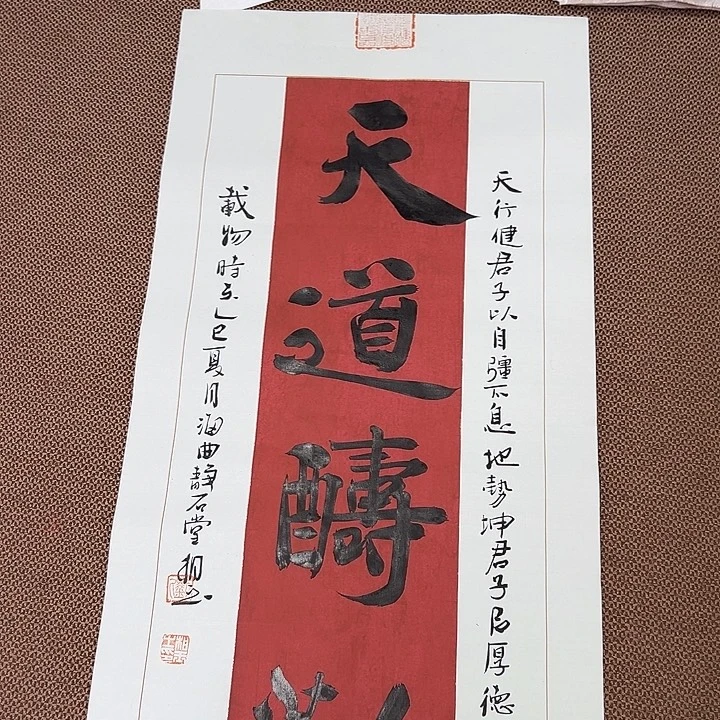 天行健君子以自彊不息地勢坤君子㠯厚德
天道醻
載物時在乙巳夏月海曲石堂